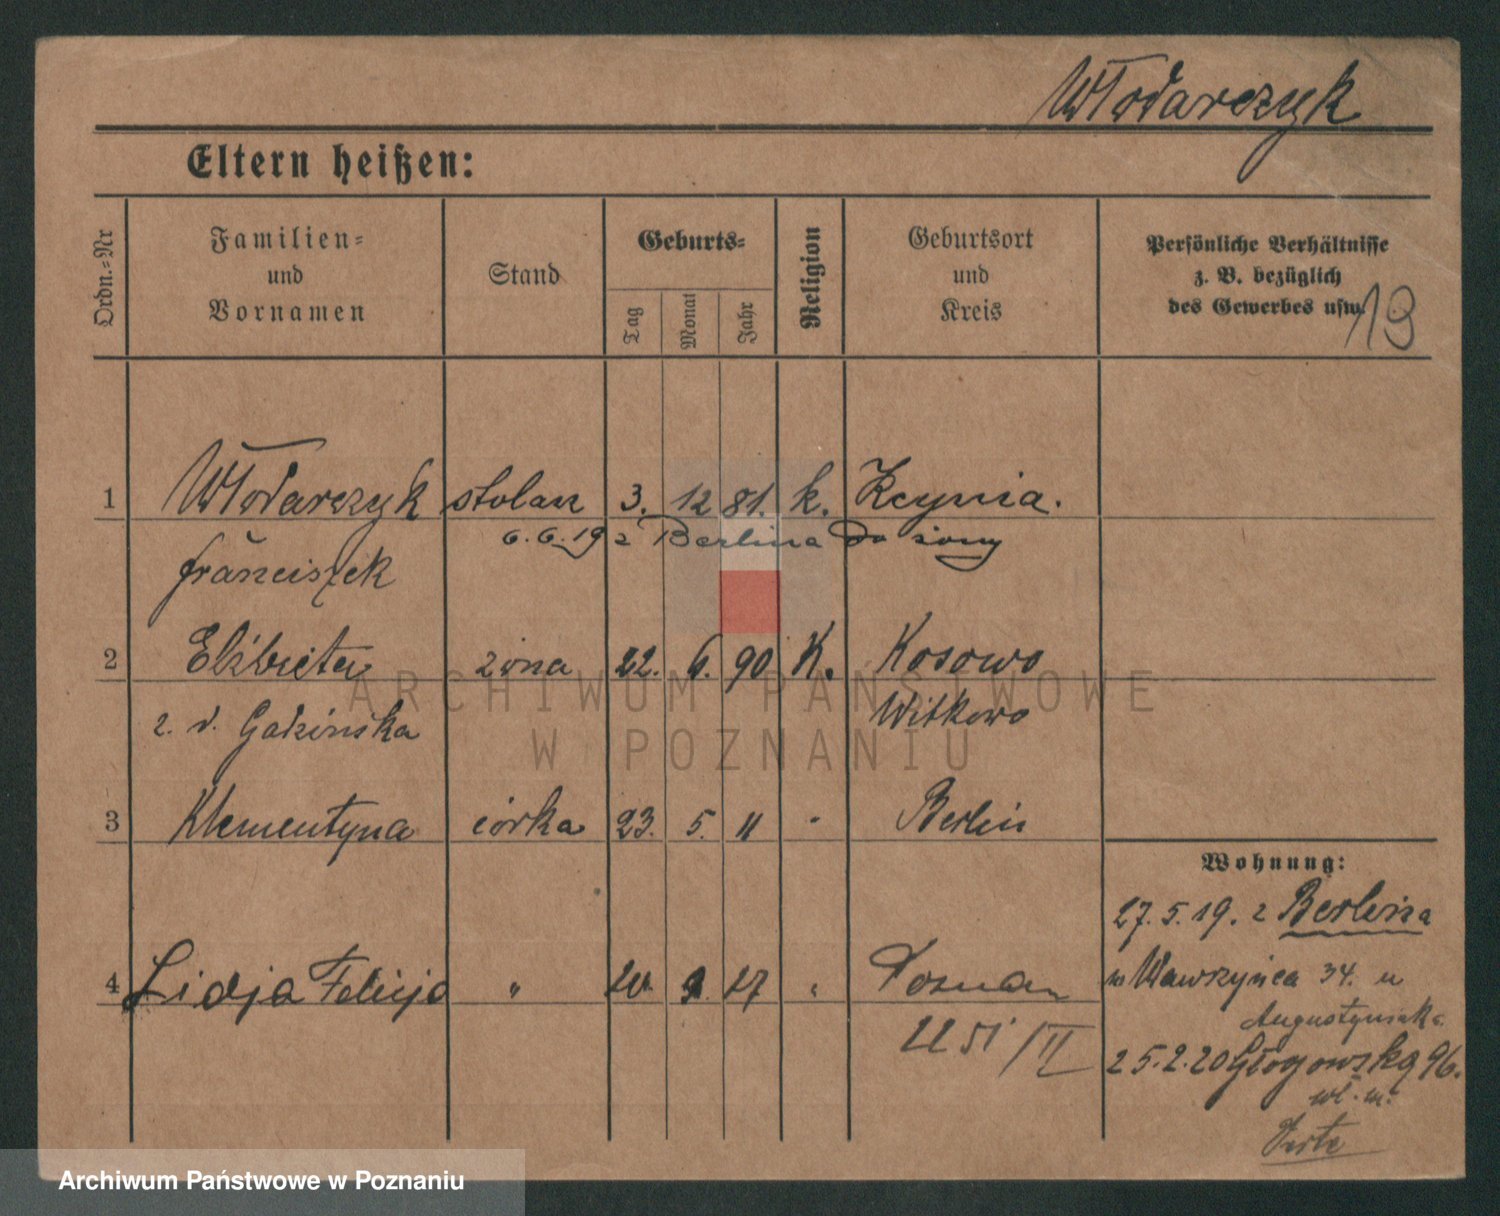 Włodarczyk
Eltern heißen:
Ordn.=Nr
Familien=
und
Vornamen
Stand
Geburts=
Tag
Monat
Jahr
Religion
Geburtsort
und
Kreis
Persönliche Verhältnisse
z. B. bezüglich
des Gewerbes usw.
13
1 Włodarczyk stolarz 3. 12 81. k. Kcynia.
6.6.19 z Berlina do żony
Franciszek
2 Elżbieta żona 22. 6. 90 K. Kosowo
z. d. Witkowo
3 Klementyna córka 23. 5. 11 Berlin
Wohnung:
27. 5. 19. z Berlina
4 Lidja Felicja " 20. 27 " Posen
w Wawrzyńca 34. u
Augustyniaka
25.2.20 Głogowska 96.
ARCHIWUM PAŃSTWOWE
W POZNANIU
Archiwum Państwowe w Poznaniu